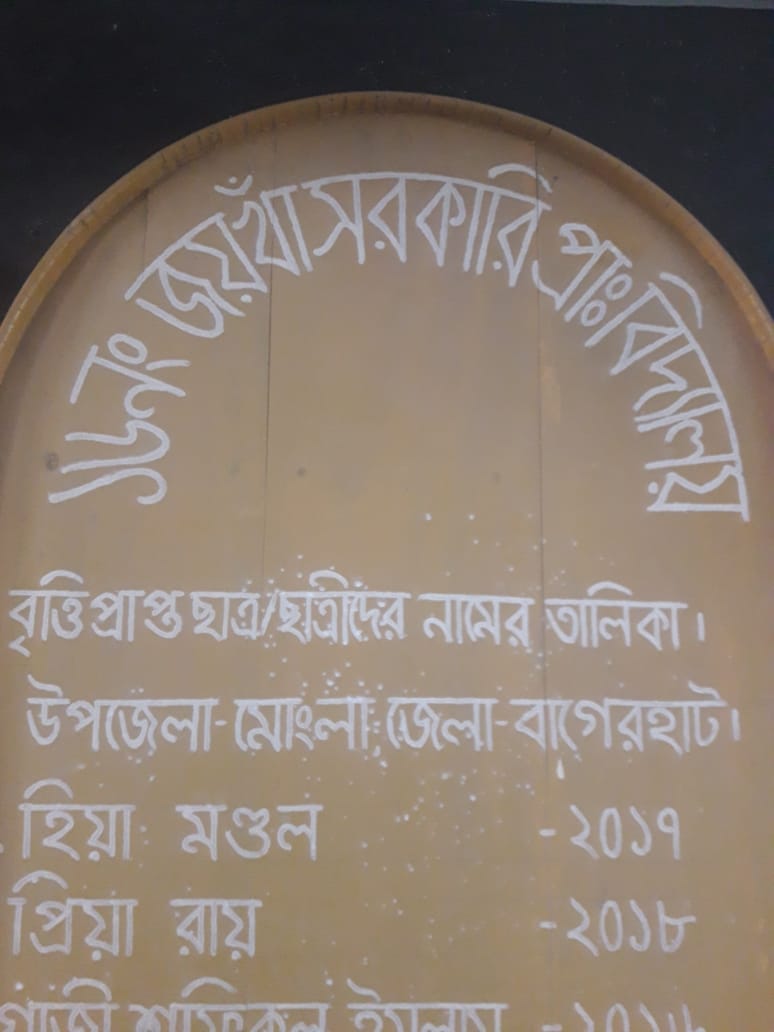 ১৬নং জয়খাঁ সরকারি প্রাঃ বিদ্যালয়
বৃত্তি প্রাপ্ত ছাত্র/ছাত্রীদের নামের তালিকা।
উপজেলা-মোংলা, জেলা-বাগেরহাট।
হিয়া মণ্ডল -২০১৭
প্রিয়া রায় -২০১৮
গাজী শফিকুল ইসলাম